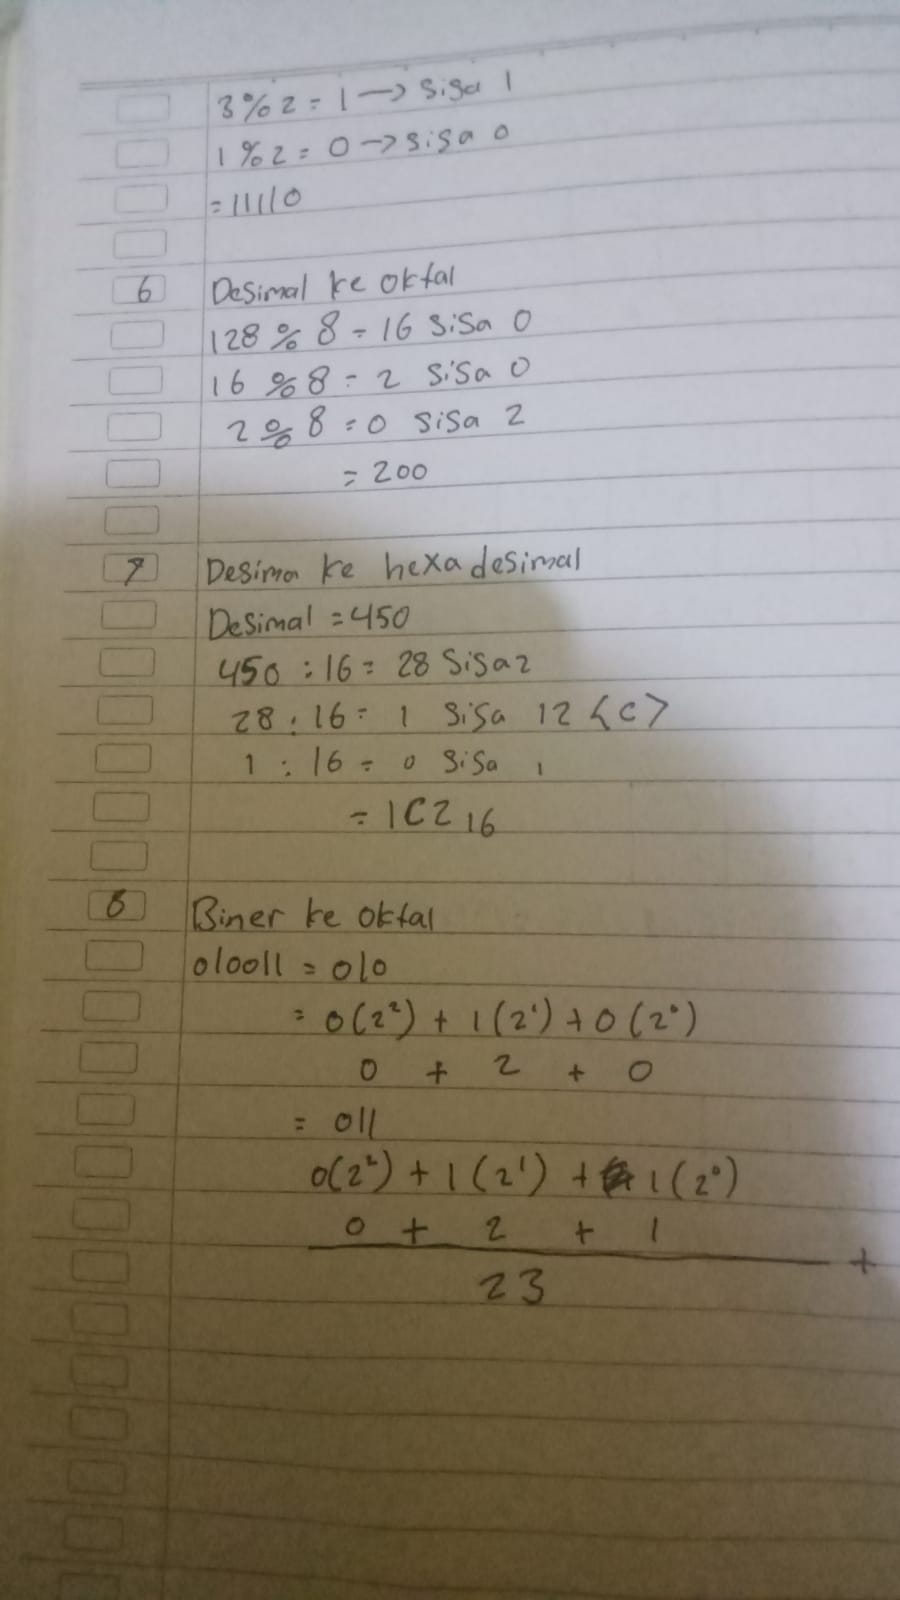 3%2=1->sisa 1
1%2=0->sisa 0
=11110
6 Desimal ke oktal
128 % 8 = 16 sisa 0
16 % 8 = 2 sisa 0
2 % 8 = 0 sisa 2
= 200
7 Desiman ke hexadesimal
Desimal = 450
450 : 16 = 28 sisa 2
28 : 16 = 1 sisa 12 <C>
1 : 16 = 0 sisa 1
= 1C2 16
8 Biner ke oktal
010011 = 010
= 0(2²) + 1(2¹) + 0(2⁰)
0 + 2 + 0
= 011
0(2²) + 1(2¹) + 1(2⁰)
0 + 2 + 1
+
23